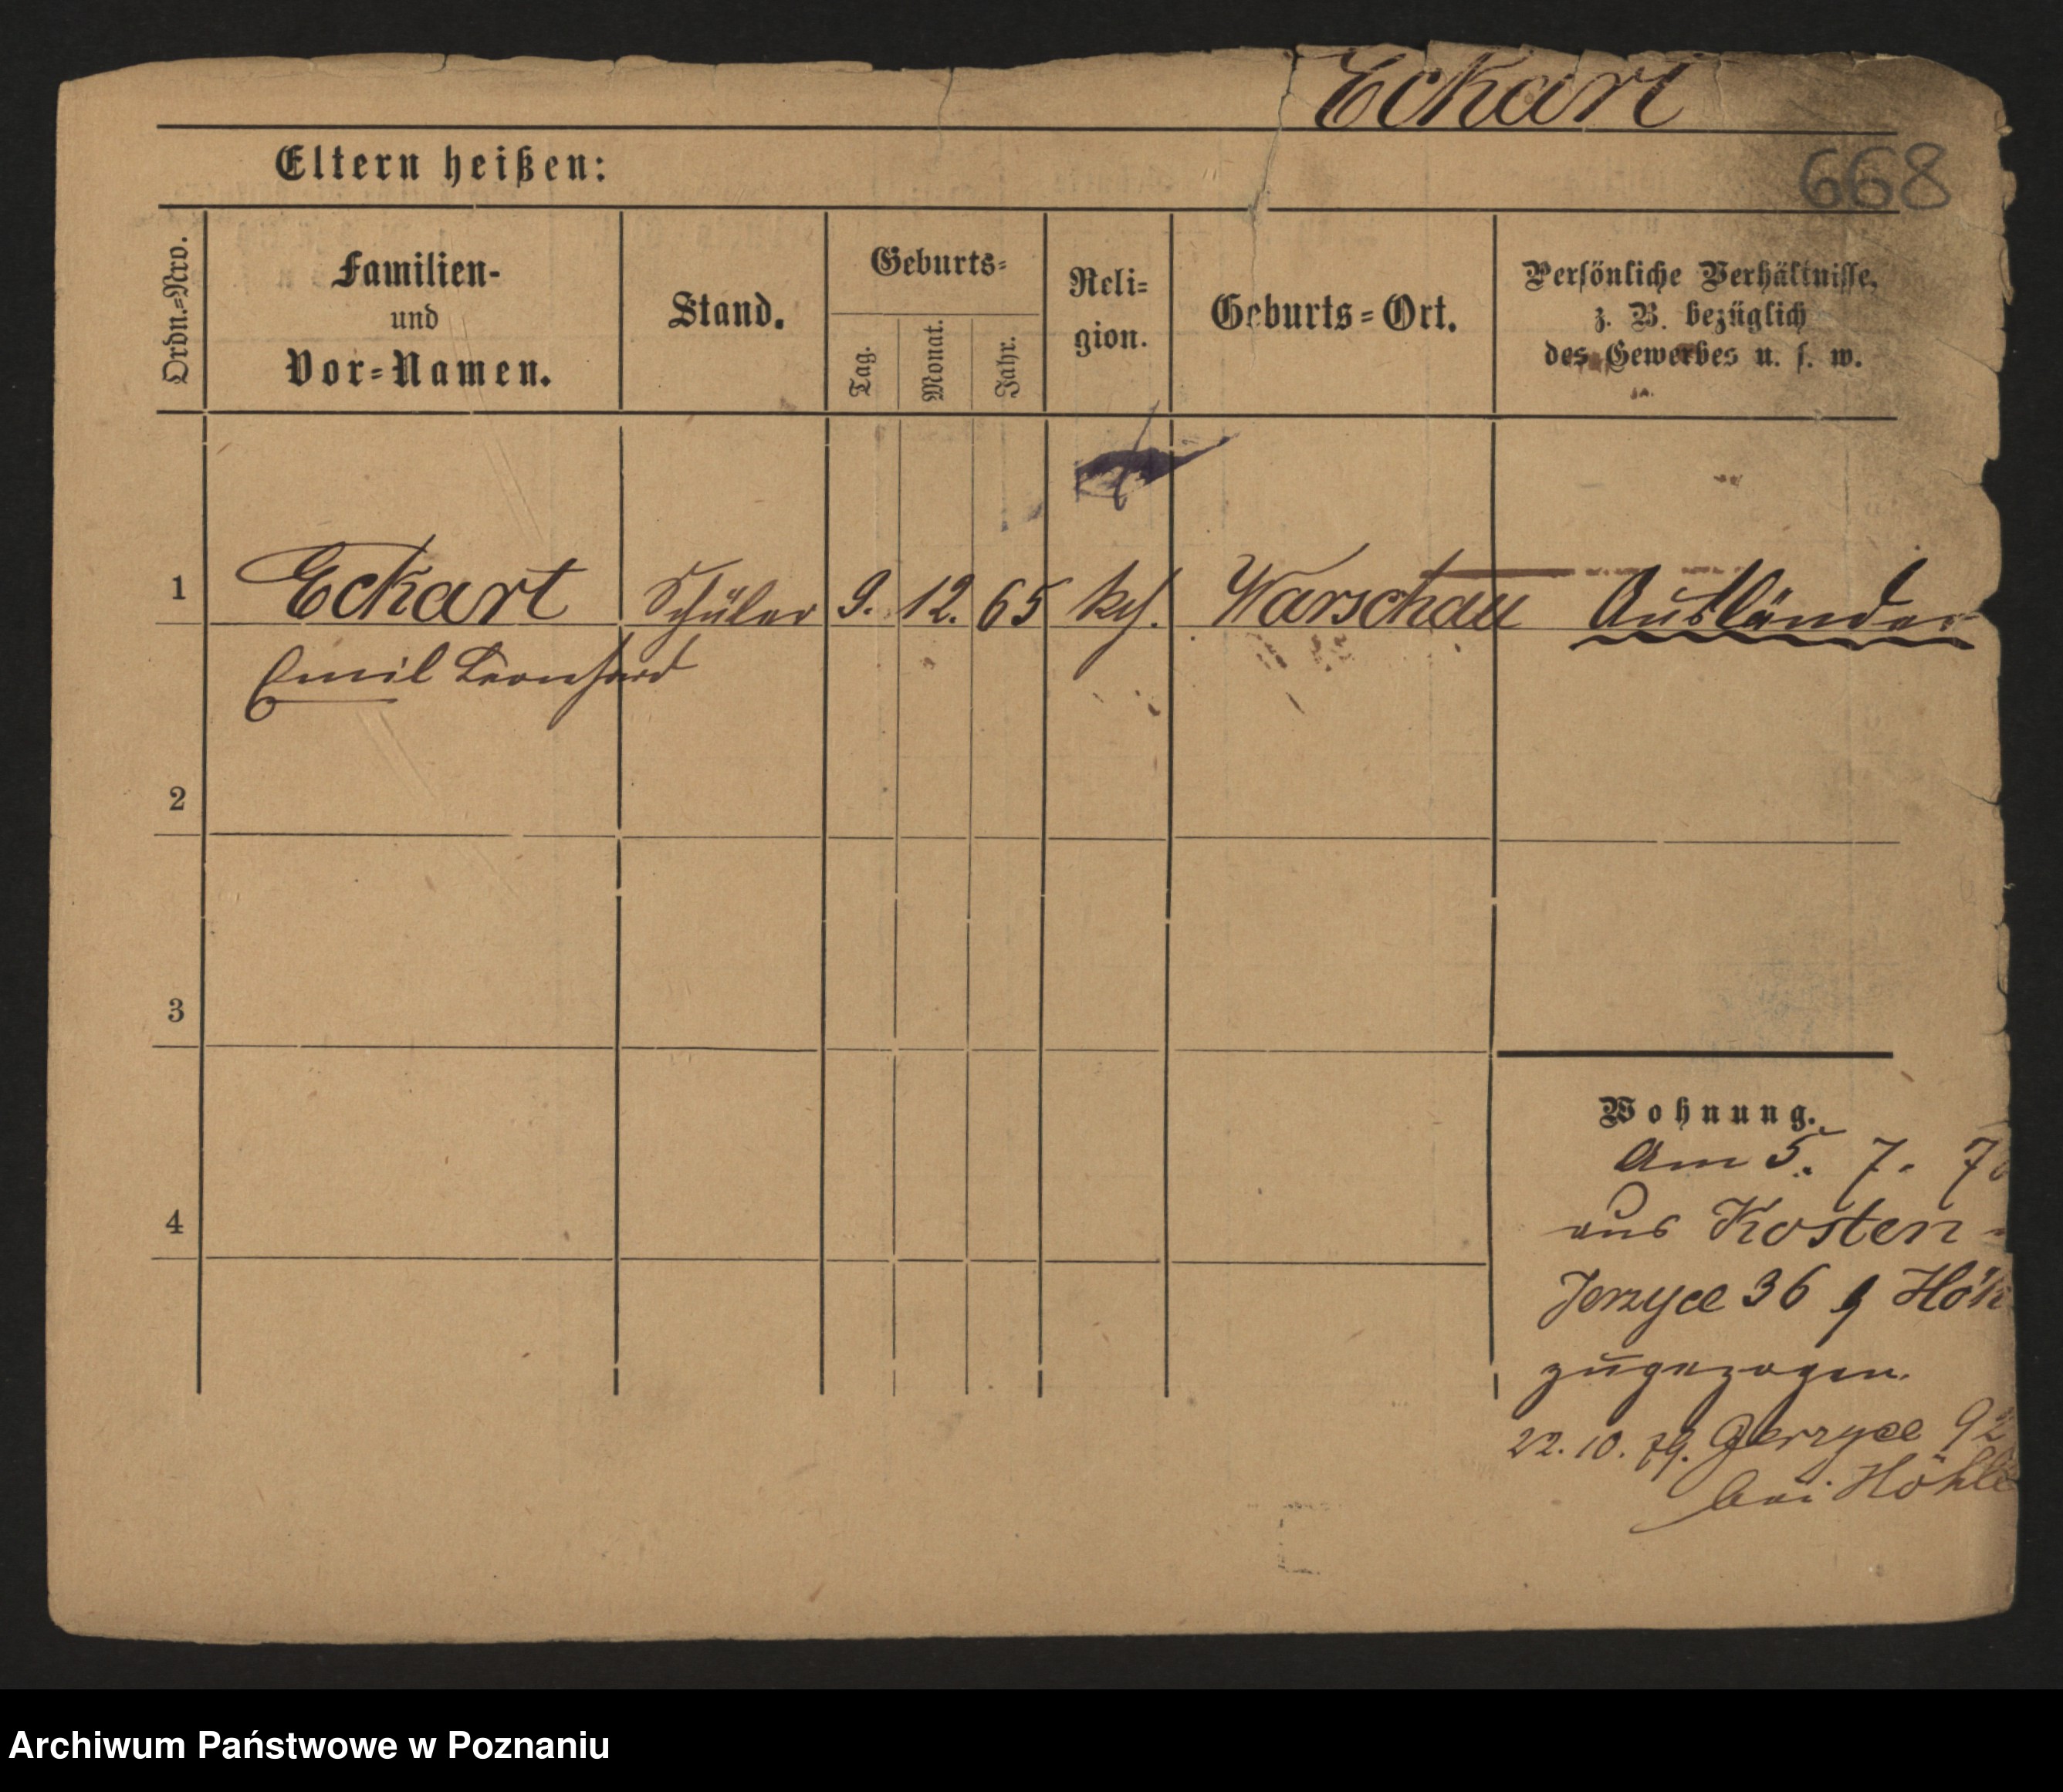 Eckart
668
Eltern heißen:
Ordn.=Nro.
Familien-
und
Vor=Namen.
Stand.
Geburts=
Tag.
Monat.
Jahr.
Reli=
gion.
Geburts=Ort.
Persönliche Verhältnisse,
z. B. bezüglich
des Gewerbes u. s. w.
1 Eckart Schüler 9. 12. 65 kth. Warschau Ausländer
Emil Leonhard
2
3
4
Wohnung.
Am 5. 7. 7
aus Kosten
Jerzyce 36
zugezogen.
22.10.79. Jerzyce 92
bei Höhle
Archiwum Państwowe w Poznaniu